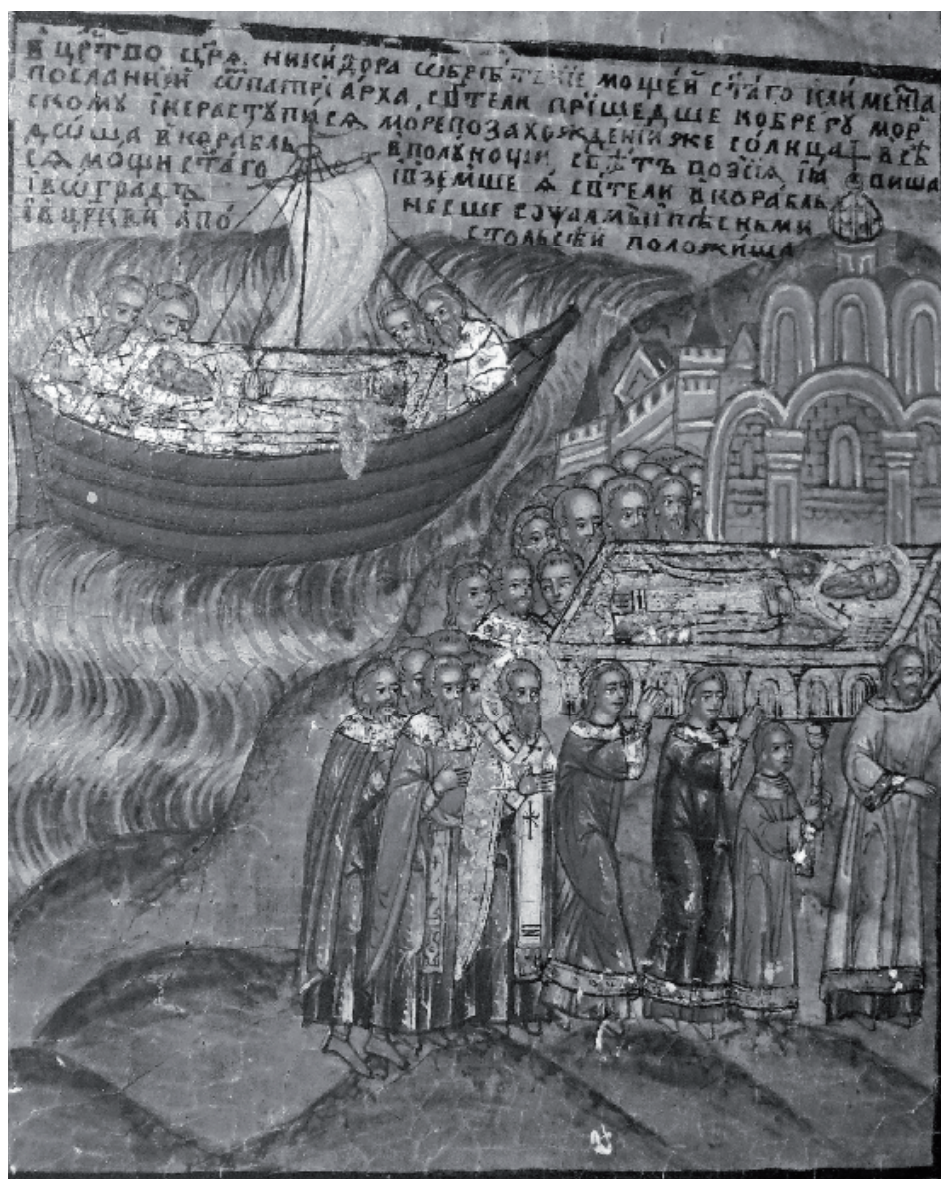 В ЦРТ҃ВО ЦР҃Ѧ НИКИѲОРА ѠБРѢТЕНІЕ МОЩЕЙ СТ҃АГО КЛИМЕНТА
ПОСЛАННІИ ѾПАТРІАРХА СТ҃ИТЕЛИ ПРІШЕДШЕ КОБРЕГУ МОР
СКОМУ ІНЕРАСТУПИСѦ МОРЕ ПОЗАХОЖДЕНІИ ЖЕ СОЛНЦА ВСѢ
ДОША В КОРАБЛЬ В ПОЛУНОЧИИ СВѢТЪ ВОЗСІѦ ІѦВИША
СѦ МОЩИ СТ҃АГО ІВЗЕМШЕ Ѧ СТ҃ИТЕЛИ В КОРАБЛЬ
ІВО ГРАДЪ НЕСШЕ СОѰАЛМЫ ІПѢСНЬМИ
ІВ ЦРКВИ АПО СТОЛЬСТѢЙ ПОЛОЖИША